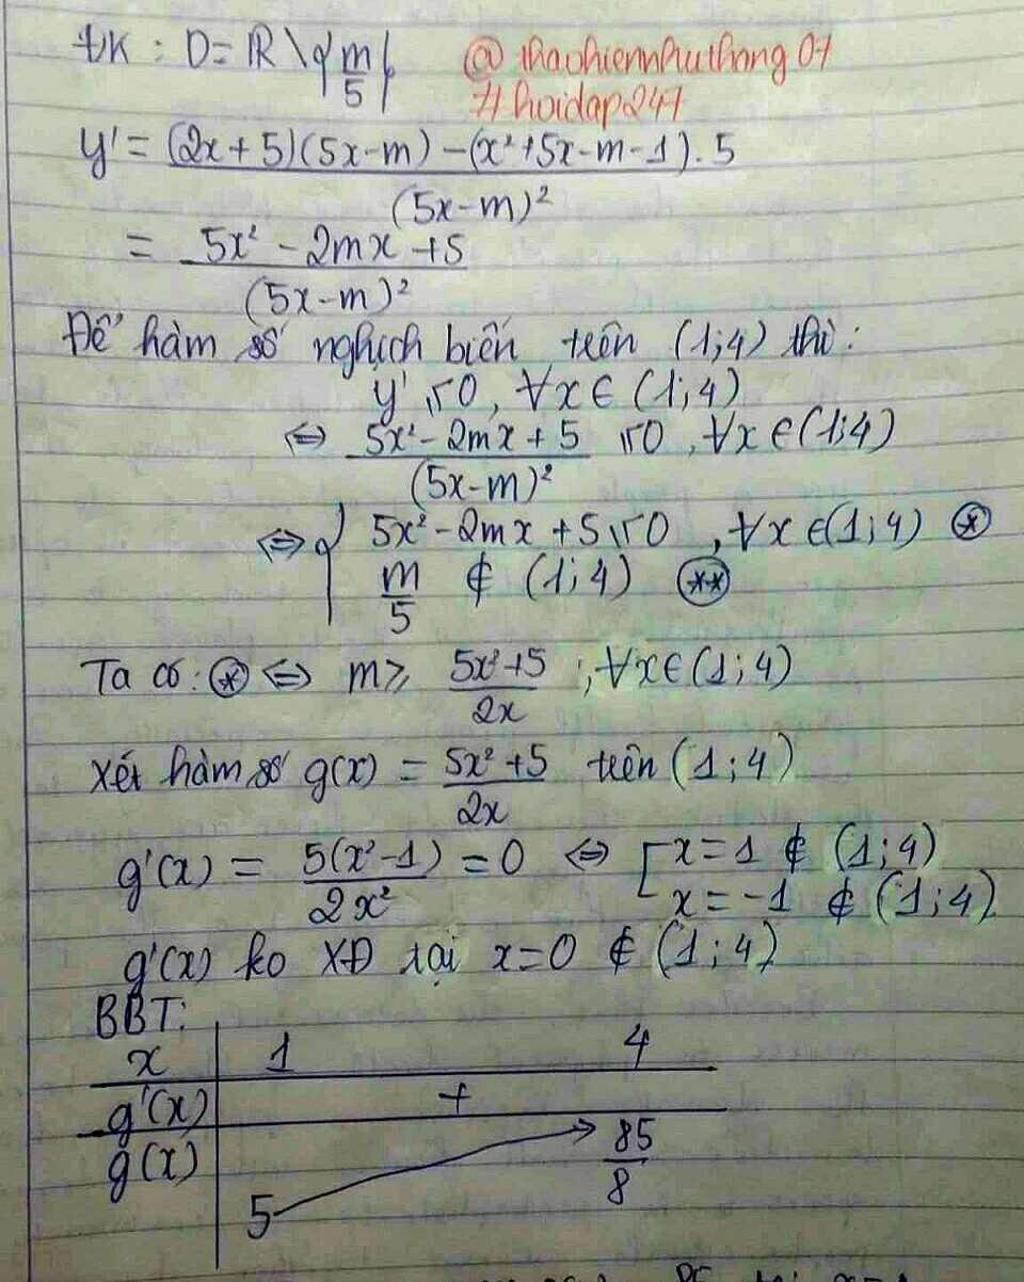 ĐK : D = ℝ \ { m/5 } @thaohiennhuthang07
#hoidap247
y' = (2x+5)(5x-m) - (x²+5x-m-1).5 / (5x-m)²
= 5x² - 2mx + 5 / (5x-m)²
Để hàm số nghịch biến trên (1;4) thì:
y' ≤ 0, ∀x ∈ (1;4)
⇔ 5x² - 2mx + 5 / (5x-m)² ≤ 0, ∀x ∈ (1;4)
⇔ { 5x² - 2mx + 5 ≤ 0, ∀x ∈ (1;4) (*)
m/5 ∉ (1;4) (**)
Ta có: (*) ⇔ m ≥ 5x²+5 / 2x ; ∀x ∈ (1;4)
Xét hàm số g(x) = 5x²+5 / 2x trên (1;4)
g'(x) = 5(x²-1) / 2x² = 0 ⇔ [ x = 1 ∉ (1;4)
x = -1 ∉ (1;4)
g'(x) ko XĐ tại x=0 ∉ (1;4)
BBT:
x 1 4
g'(x) +
g(x) 5 85/8